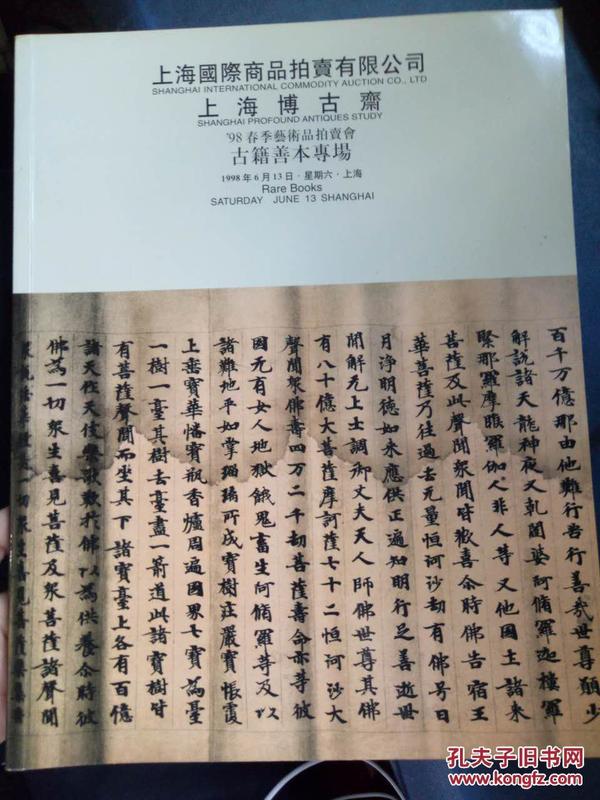 上海國際商品拍賣有限公司
SHANGHAI INTERNATIONAL COMMODITY AUCTION CO., LTD
上海博古齋
SHANGHAI PROFOUND ANTIQUES STUDY
'98春季藝術品拍賣會
古籍善本專場
1998年6月13日·星期六·上海
Rare Books
SATURDAY JUNE 13 SHANGHAI
百千万億那由他難行苦行善哉世尊願少
解說諸天龍神夜叉乹闥婆阿脩羅迦樓羅
緊那羅摩睺羅伽人非人等又他國土諸来
菩薩及此聲聞眾聞皆歡喜尒時佛告宿王
華菩薩乃往過去无量恒河沙劫有佛号日
月淨明德如来應供正遍知明行足善逝世
間解无上士調御丈夫天人師佛世尊其佛
有八十億大菩薩摩訶薩七十二恒河沙大
聲聞眾佛壽四万二千劫菩薩壽命亦等彼
國无有女人地獄餓鬼畜生阿脩羅等及以
諸難地平如掌瑠璃所成寶樹莊嚴寶帳覆
上垂寶華幡寶瓶香爐周遍國界七寶為臺
一樹一臺其樹去臺盡一箭道此諸寶樹皆
有菩薩聲聞而坐其下諸寶臺上各有百億
諸天作天伎樂歌歎於佛以為供養尒時彼
佛為一切眾生喜見菩薩及眾菩薩諸聲聞
孔夫子旧书网
www.kongfz.com